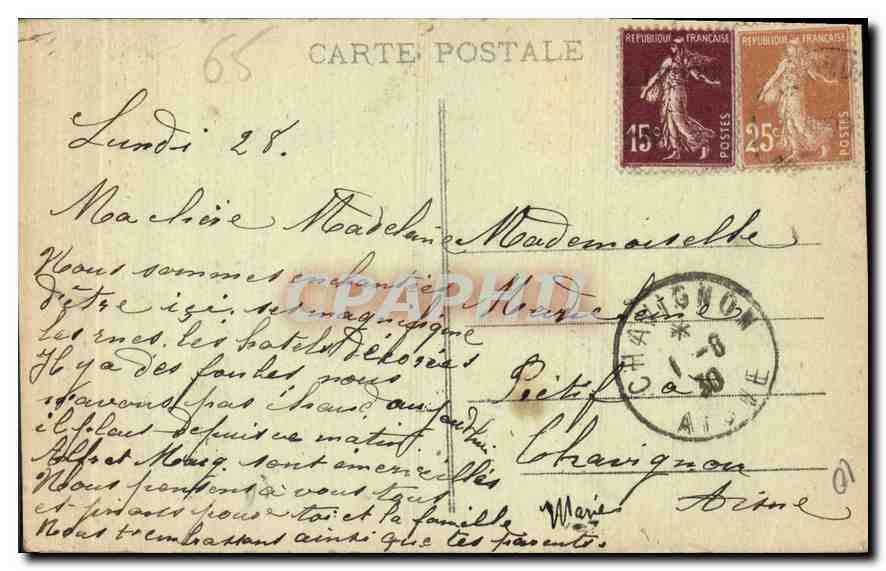 65
CARTE POSTALE
REPUBLIQUE FRANÇAISE
15c
POSTES
REPUBLIQUE FRANÇAISE
25c
POSTES
Lundi 28.
Ma chère Madeleine
Nous sommes enchantées
d'être içi. ses magnifique
les rues, les hotels décorées
Il y a des foules nous
n'avons pas chaud aujourd'hui
il pleut depuis ce matin
sont émerveillés
Nous pensons à vous tous
et prions pour toi et la famille
Nous t'embrassons ainsi que tes parents.
Marie
Mademoiselle
Madeleine
Piétif à
Chavignon
Aisne
CHAVIGNON
* 1-8
30
AISNE
CPAPHIL